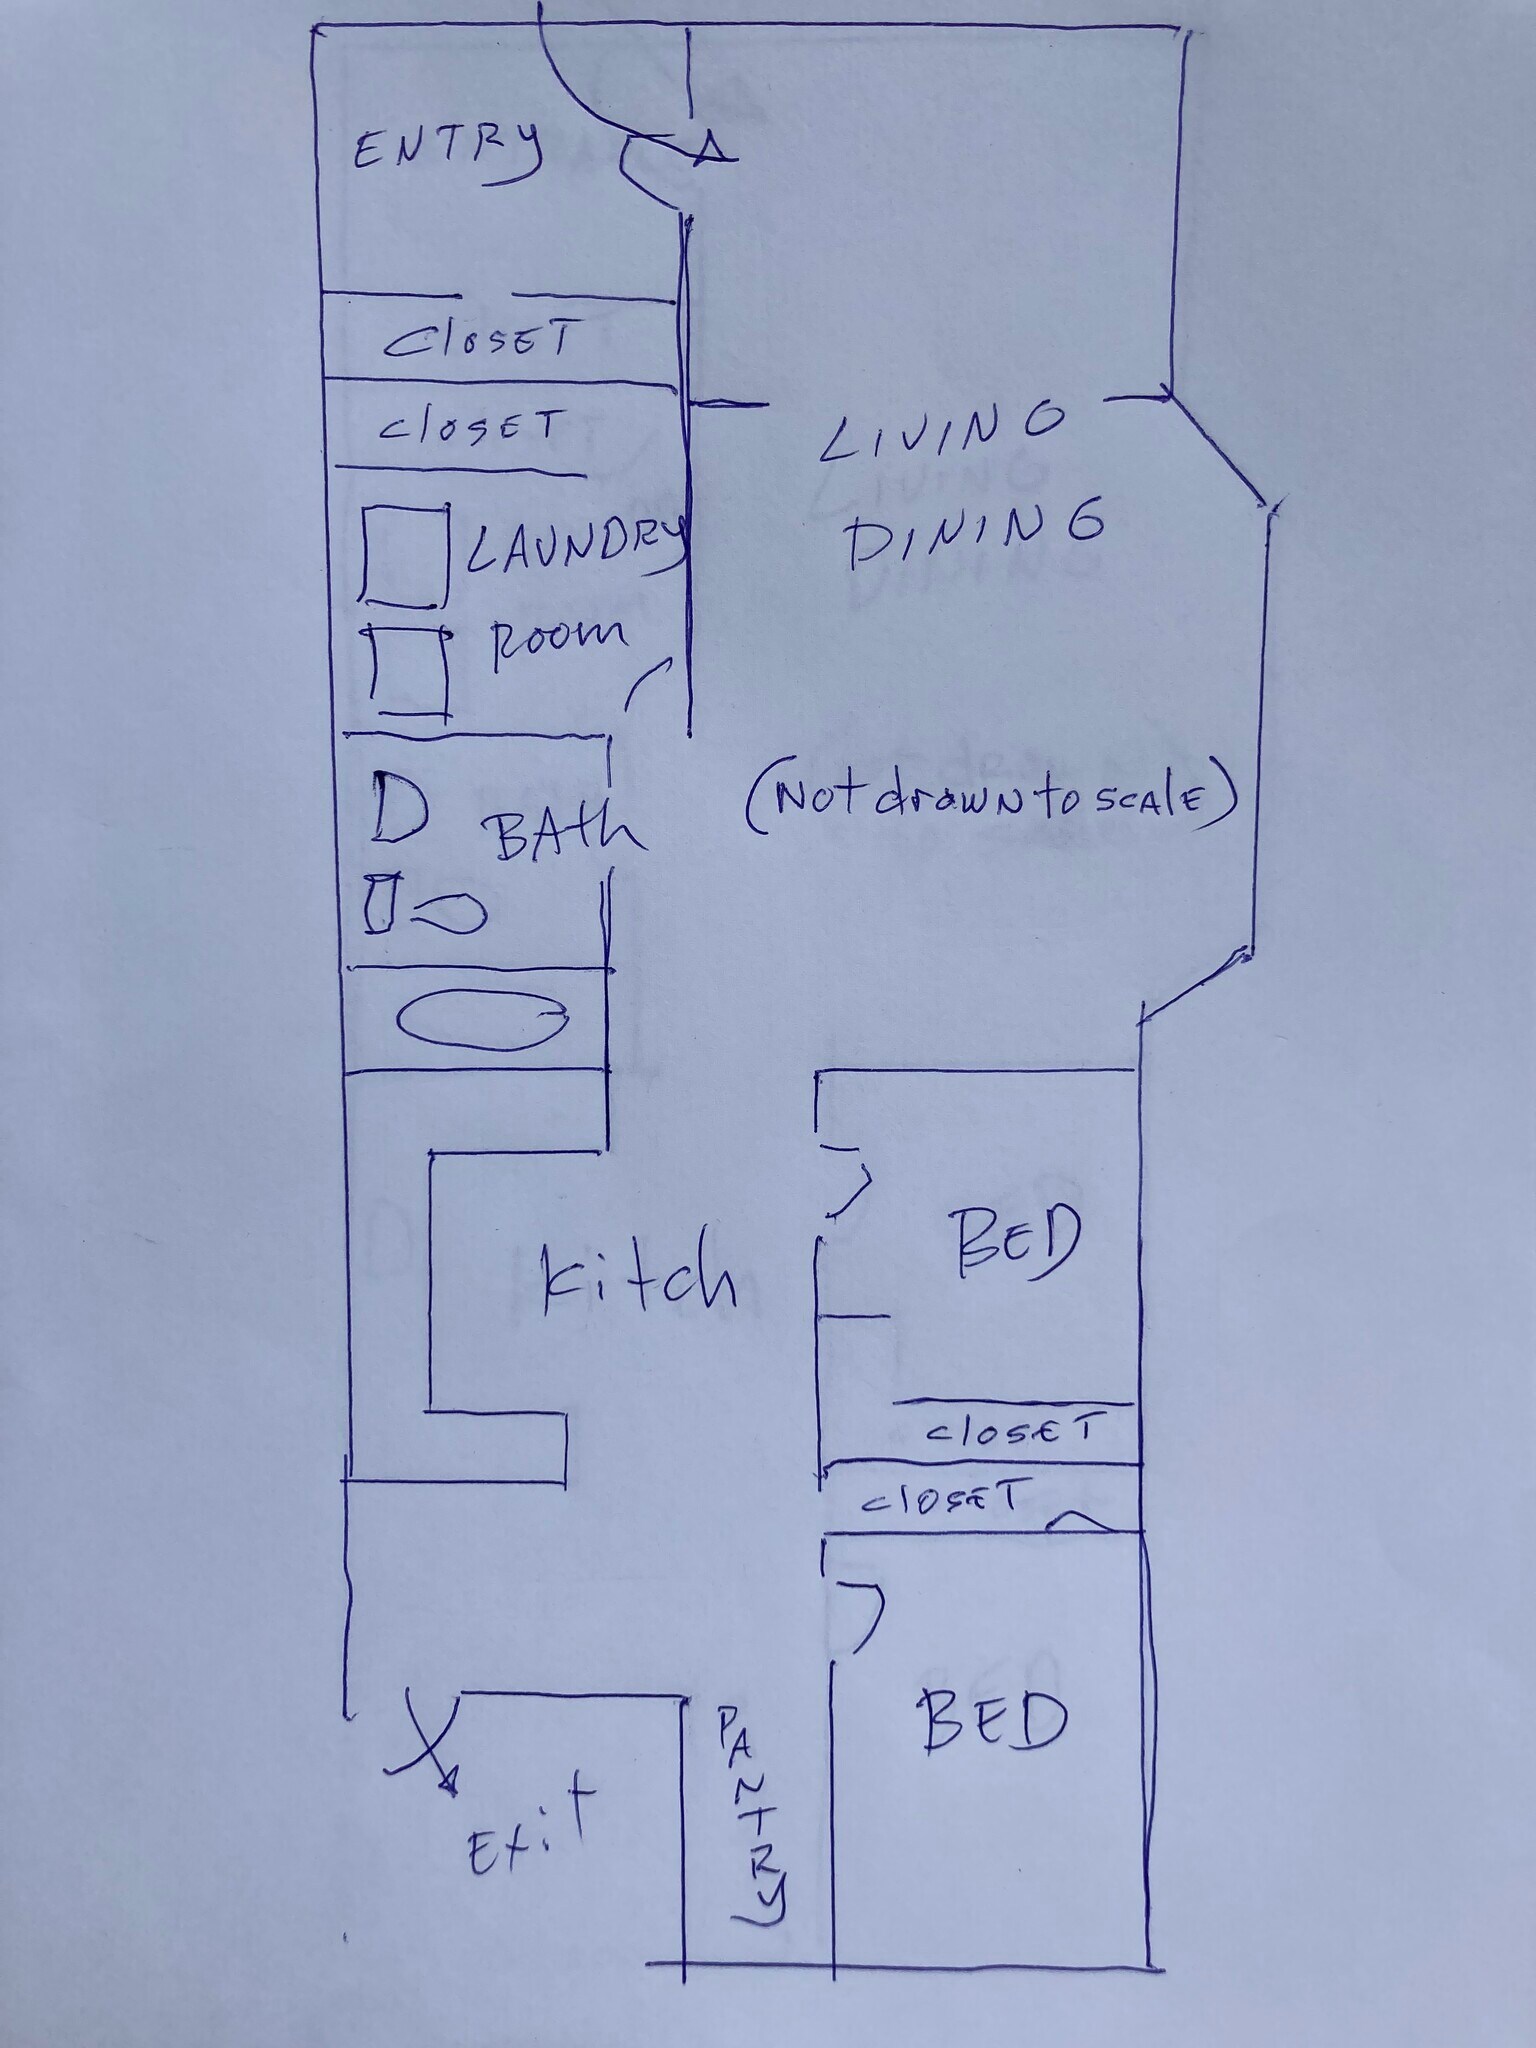 ENTRY
CLOSET
CLOSET
LIVING
DINING
LAUNDRY
ROOM
(Not drawn to scale)
BATH
Kitch
BED
CLOSET
CLOSET
BED
PANTRY
Exit